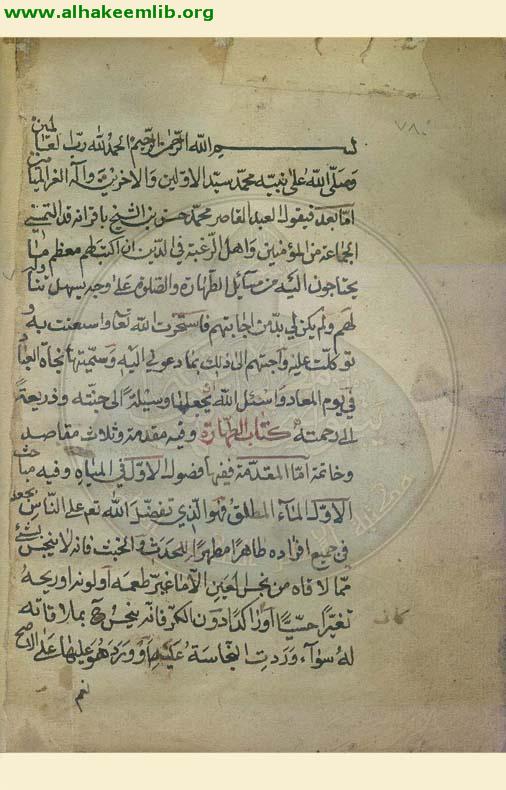 www.alhakeemlib.org
٧٨٠
بسم الله الرحمن الرحيم الحمد لله رب العالمين
وصلى الله على نبيه محمد سيد الاولين والاخرين وآله الغر الميامين
اما بعد فيقول العبد القاصر محمد حسن بن الشيخ باقر انه قد التمسني
جماعة من المؤمنين واهل الرغبة في الدين ان اكتب لهم معظم ما
يحتاجون اليه من مسايل الطهارة والصلوة على وجه يسهل تناوله
لهم ولم يكن لي بد من اجابتهم فاستخرت الله تعا واستعنت به و
توكلت عليه واجبتهم الى ذلك بما دعوني اليه وسميتها نجاة العباد
في يوم المعاد واسئل الله يجعلها وسيلة الى جنته وذريعة
الى رحمته كتاب الطهارة وفيه مقدمة وثلاث مقاصد
وخاتمة اما المقدمة ففيها فصول الاول في المياه وفيه مباحث
الاول الماء المطلق فهو الذي تفضل الله نعم على الناس بجعله
في جميع افراده طاهرا مطهرا للحدث والخبث فانه لا ينجس بشئ
مما لاقاه من نجس العين الا ما غير طعمه او لونه او ريحه
تغيرا حسيا او راكدا دون الكر فانه ينجس ح بملاقاته
له سواء وردت النجاسة عليه او ورد هو عليها على الاصح
نعم